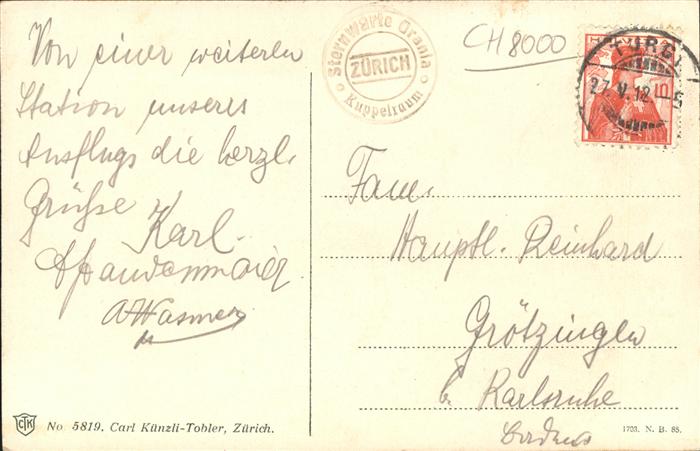 Von einer weiteren
Station unseres
Ausflugs die herzl.
Grüße
Karl.
A. Wasmer
Sternwarte Urania
ZÜRICH
Kuppelraum
CH 8000
HELVETIA
TURGI
27.V.12.-5
10
Fam.
Hauptl. Reinhard
Grötzingen
b. Karlsruhe
Baden
CTK
No 5819. Carl Künzli-Tobler, Zürich.
1703. N. B. 85.